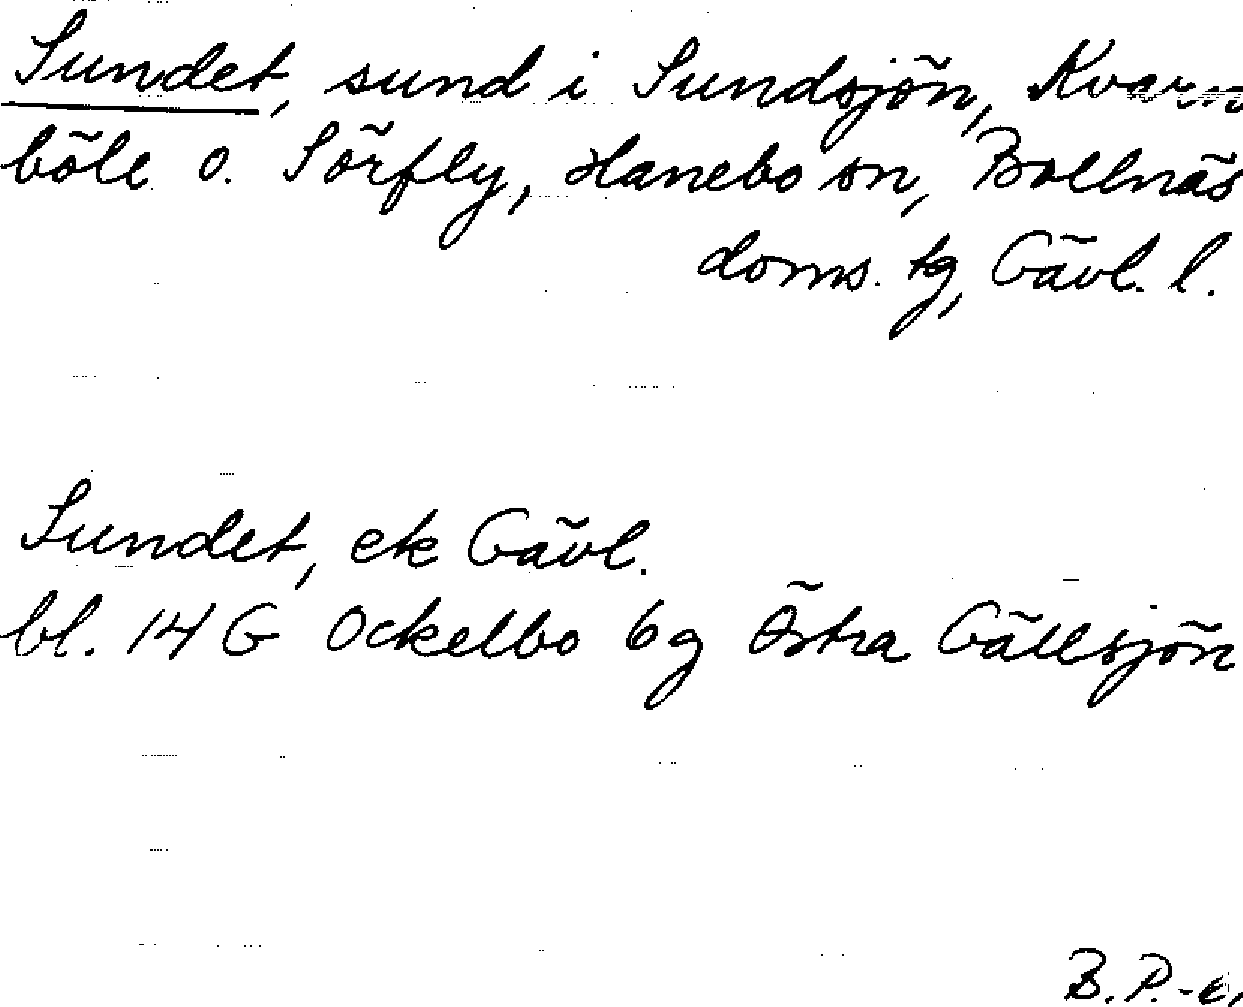 Sundet, sund i Sundsjön, Kvarn
böle o. Sörfly, Hanebo sn, Bollnäs
doms. tg, Gävl. l.
Sundet, ek Gävl.
bl. 14 G Ockelbo 6g Östra Gällsjön
B. P.-e.